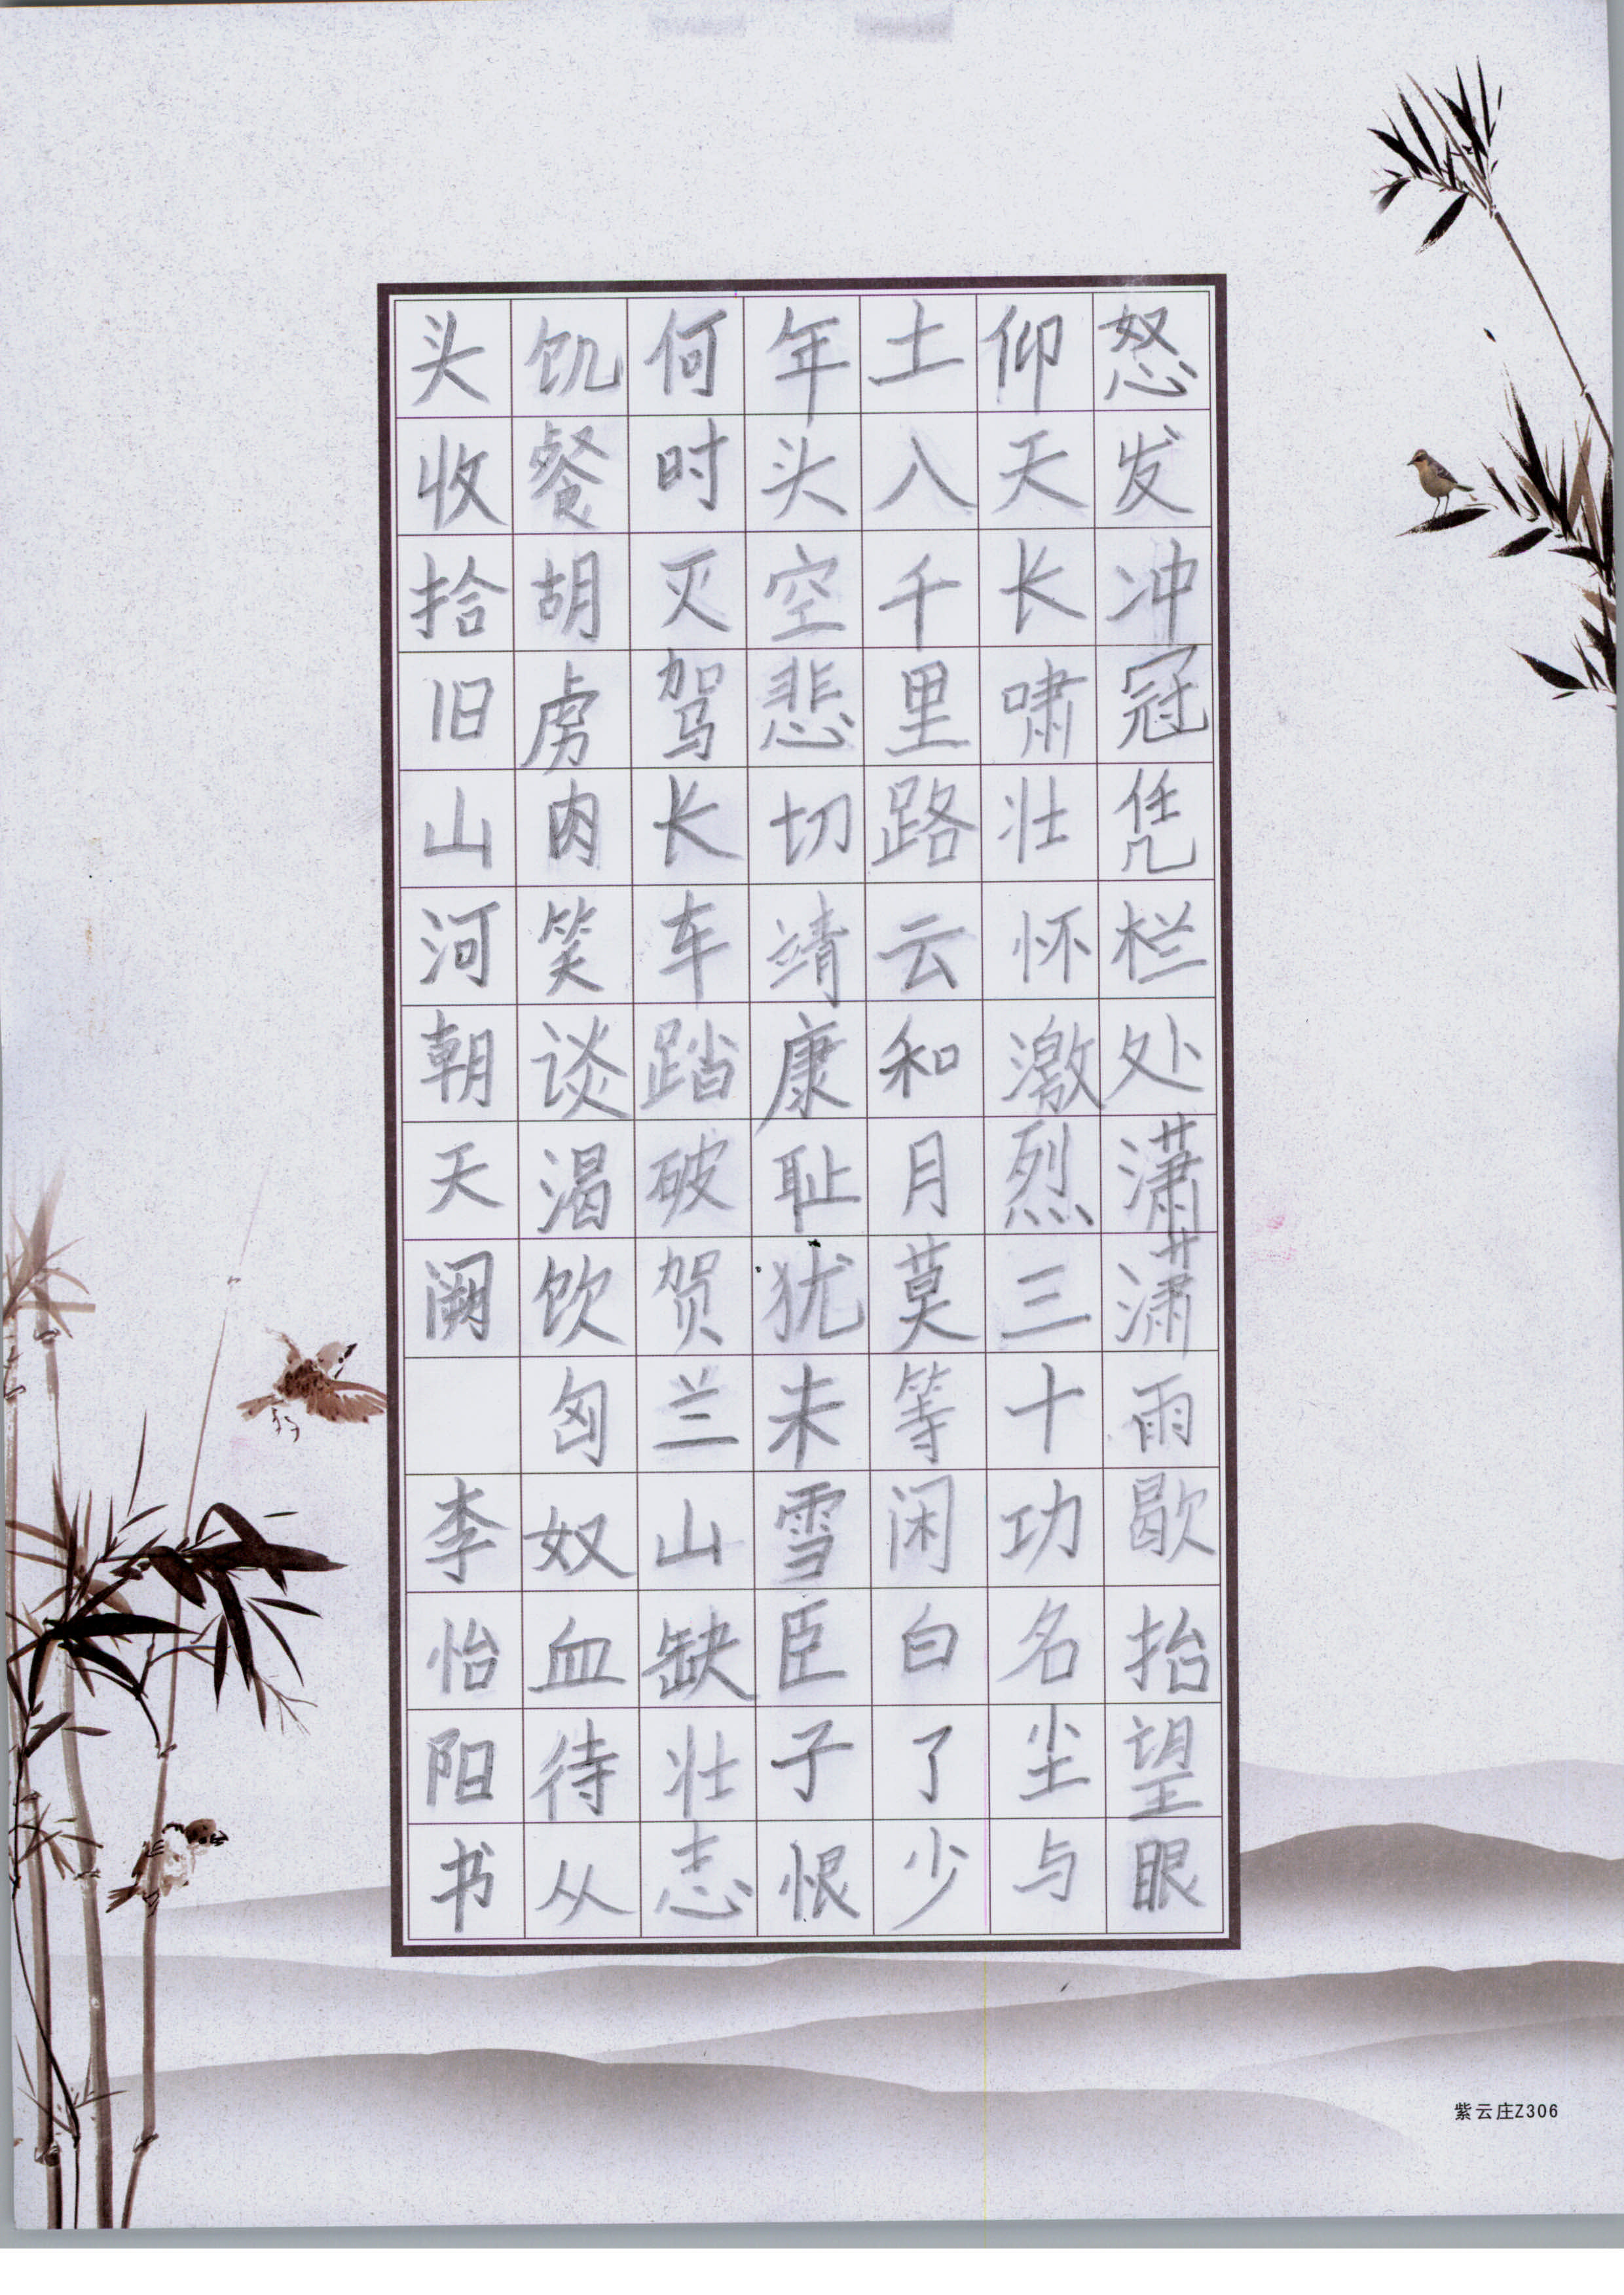 怒发冲冠凭栏处潇潇雨歇抬望眼
仰天长啸壮怀激烈三十功名尘与
土八千里路云和月莫等闲白了少
年头空悲切靖康耻犹未雪臣子恨
何时灭驾长车踏破贺兰山缺壮志
饥餐胡虏肉笑谈渴饮匈奴血待从
头收拾旧山河朝天阙 李怡阳书
紫云庄Z306